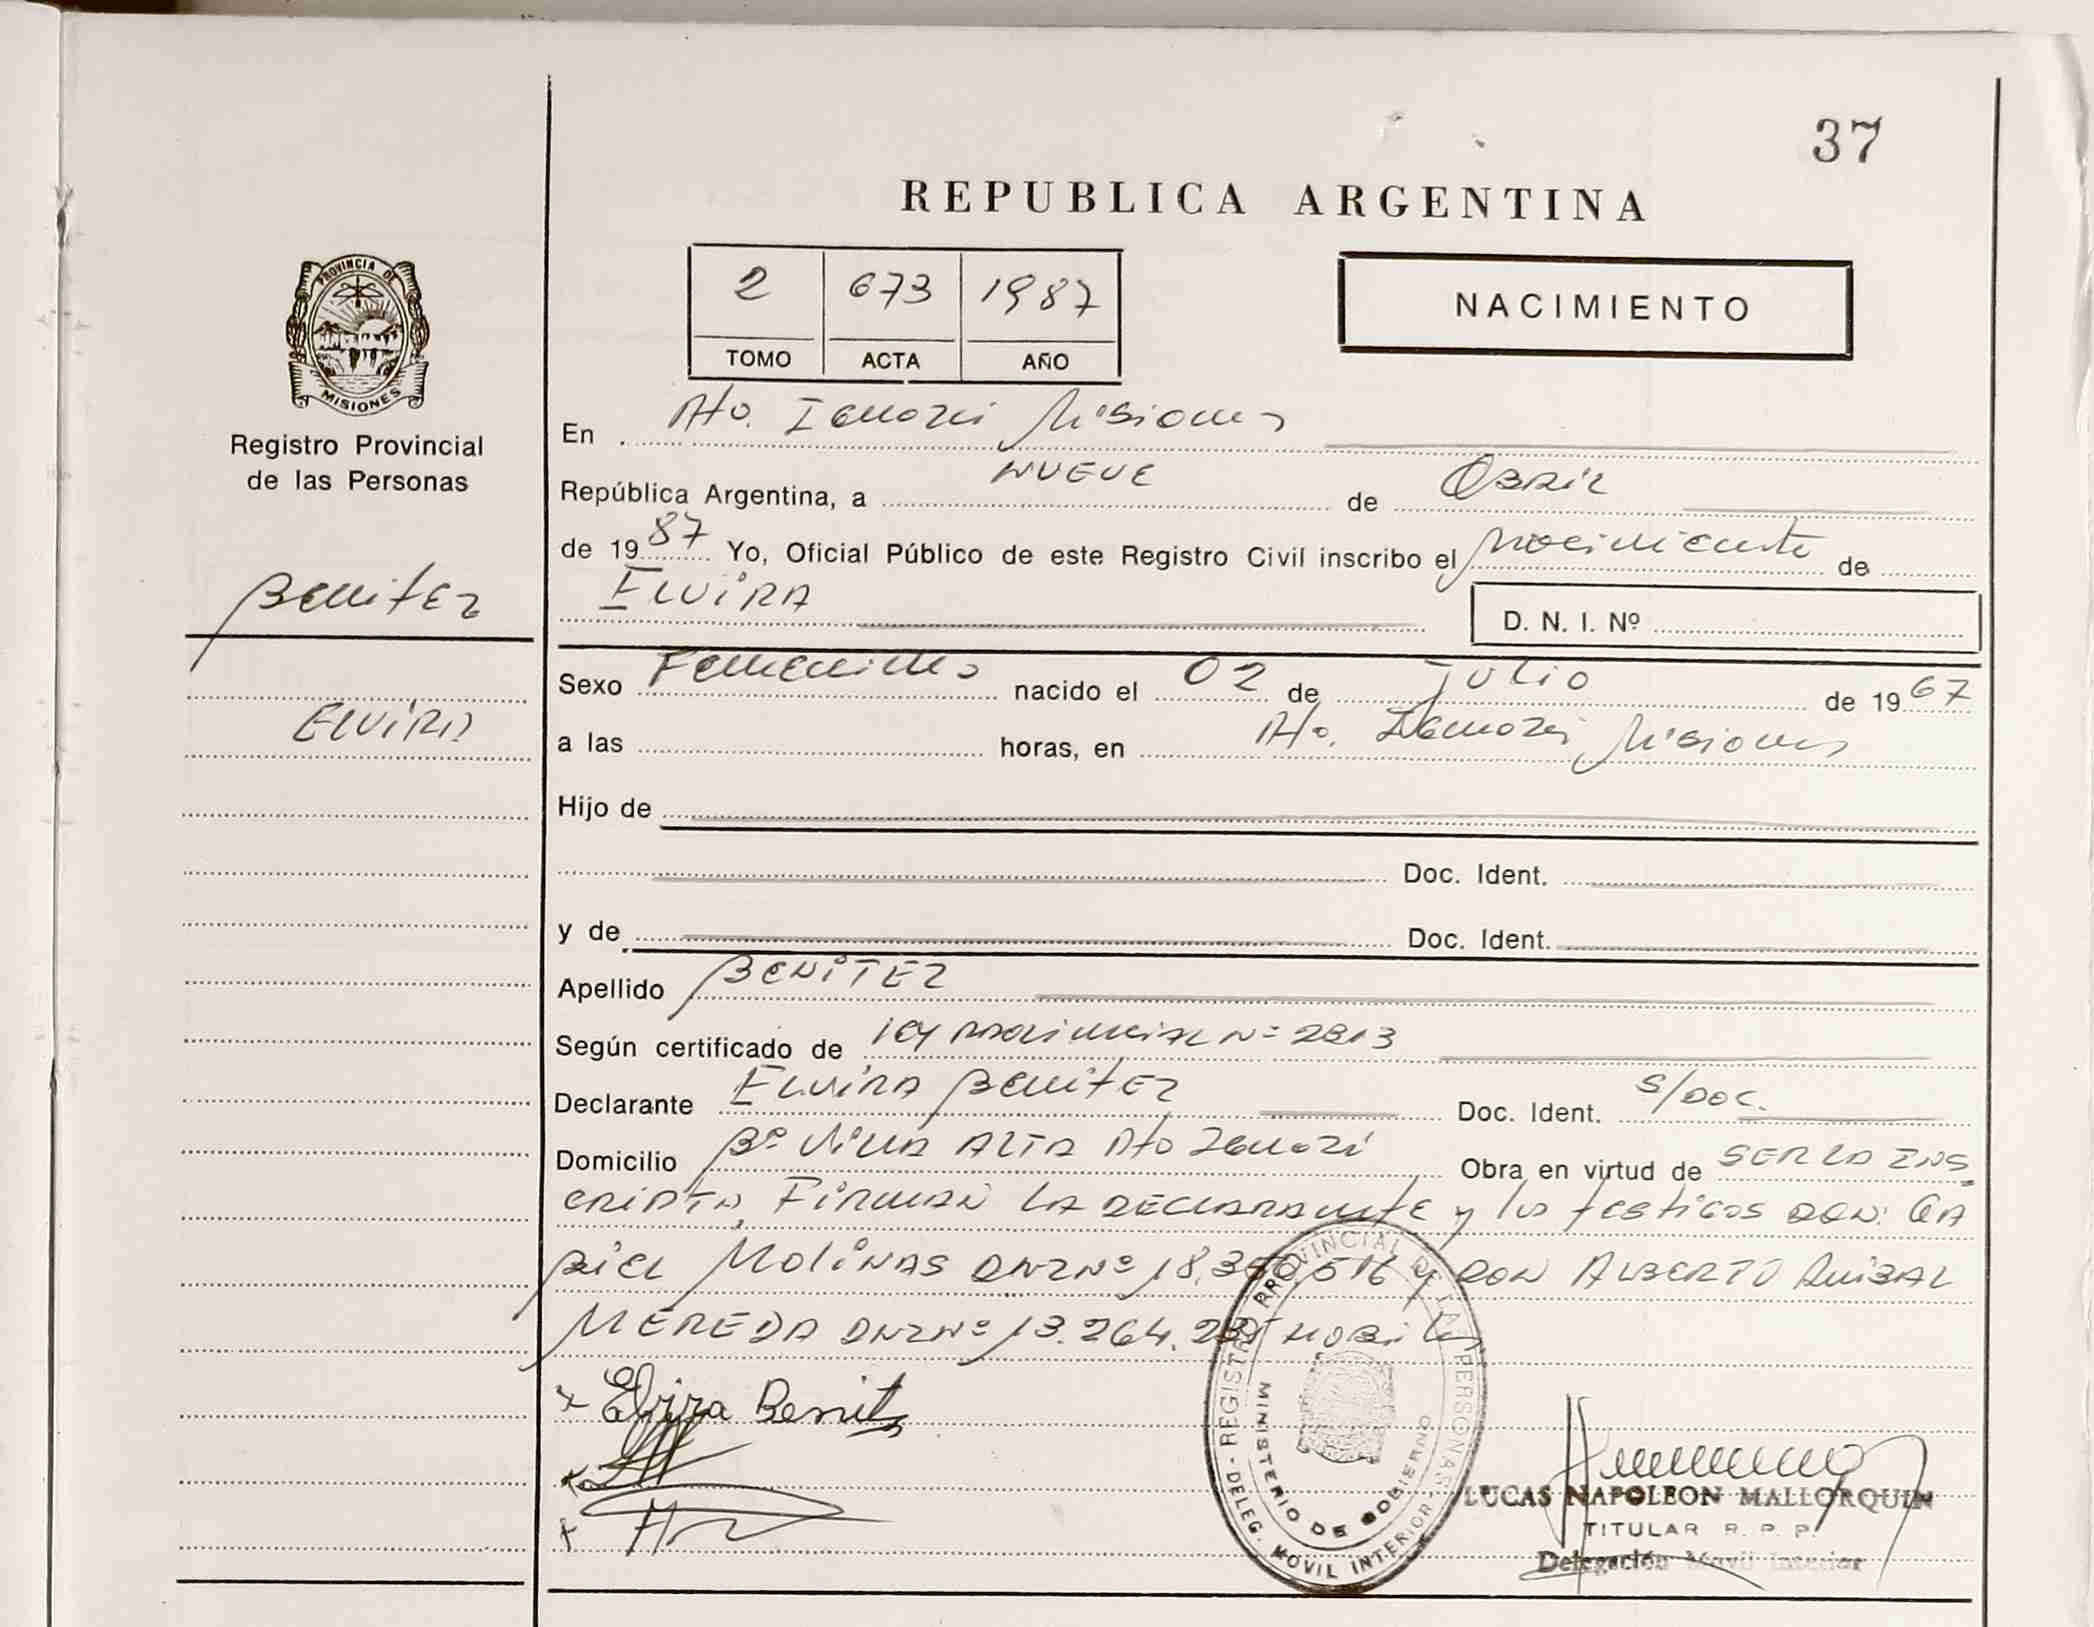 37
REPUBLICA ARGENTINA
2 673 1987
TOMO ACTA AÑO
NACIMIENTO
PROVINCIA DE
MISIONES
Registro Provincial
de las Personas
BENITEZ
ELVIRA
En Pto. Iguazú Misiones
República Argentina, a NUEVE de ABRIL
de 1987 Yo, Oficial Público de este Registro Civil inscribo el Nacimiento de
ELVIRA
D. N. I. Nº
Sexo Femenino nacido el 02 de Julio de 1967
a las horas, en Pto. Iguazú Misiones
Hijo de
Doc. Ident.
y de Doc. Ident.
Apellido BENITEZ
Según certificado de ley PROVINCIAL Nº 2813
Declarante ELVIRA BENITEZ Doc. Ident. S/DOC.
Domicilio Bº VILLA ALTA Pto Iguazú Obra en virtud de SER LA INS
CRIPTA. FIRMAN LA DECLARANTE y los testigos DON: GA
BRIEL MOLINAS DNI Nº 18.350.516 y DON ALBERTO ANIBAL
MEREDA DNI Nº 13.264. HABILES
x Elvira Benitez
x
x
REGISTRO PROVINCIAL DE LAS PERSONAS
MINISTERIO DE GOBIERNO
- DELEG. MOVIL INTERIOR -
LUCAS NAPOLEON MALLORQUIN
TITULAR R. P. P.
Delegación Movil Interior